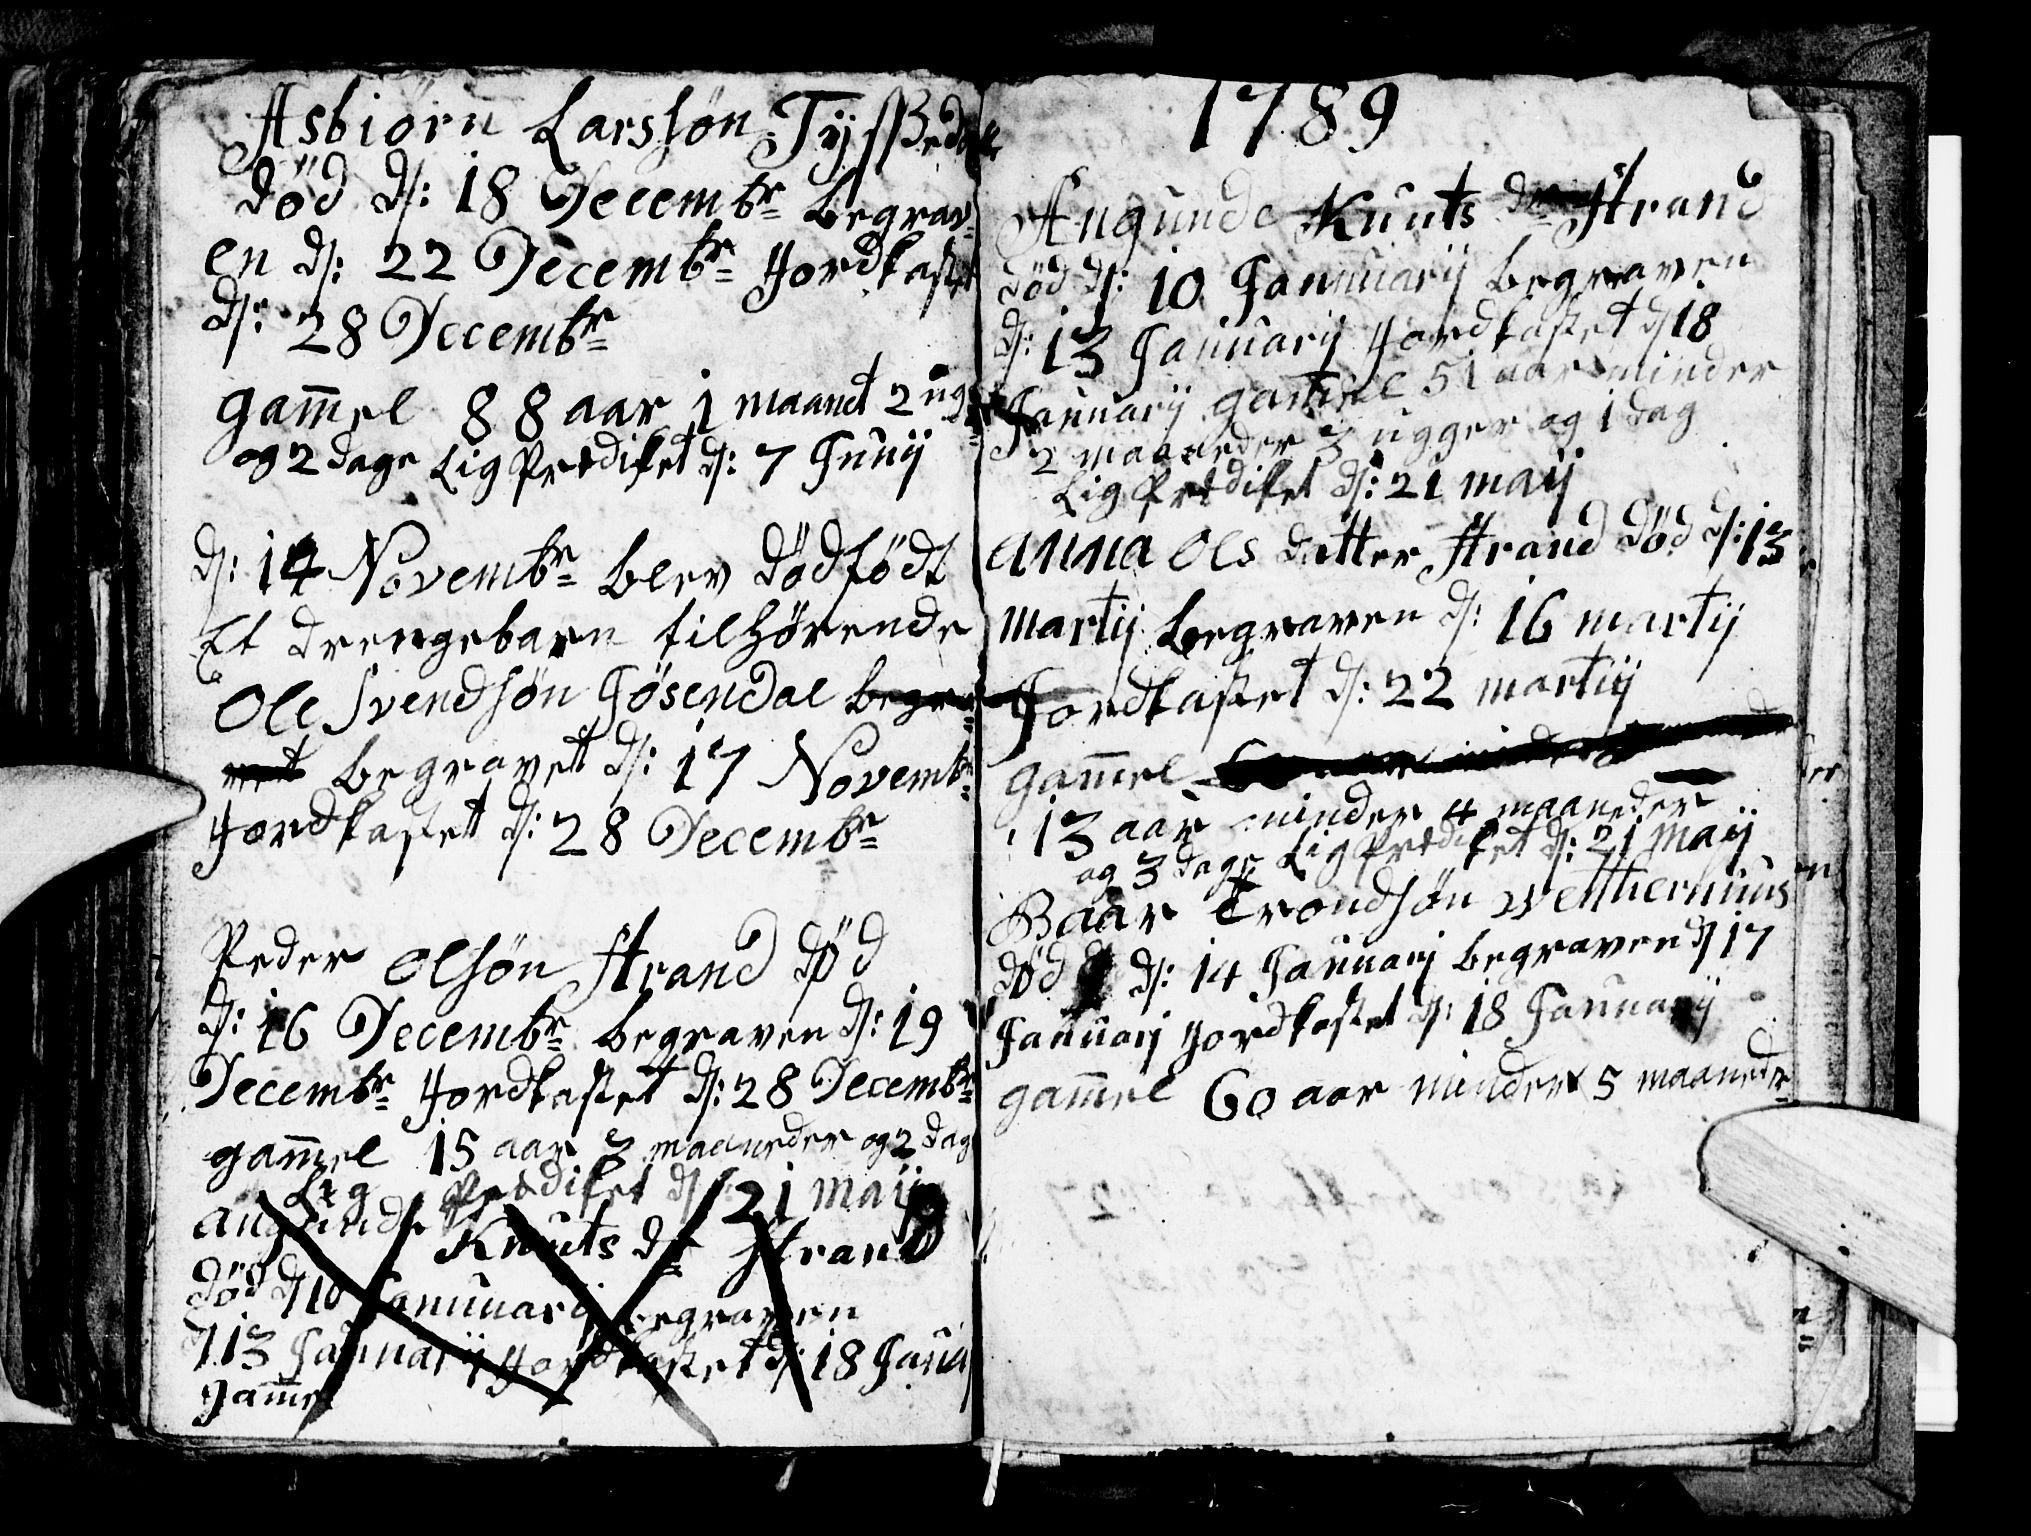 Asbiörn Larssøn Tysse
död d: 18 Decembr begrav
en d: 22 Decembr Jordkastet
d: 28 Decembr
gam̅el 88 aar 1 maanet 2 ug
og 2 dage Lig Prædiket d: 7 Junij
d: 14 Novembr blev dödfödt
Et drengebarn tilhörende
Ole Svendsön Jösendal begra
vet begravet d: 17 Novembr
Jordkastet d: 28 Decembr
Peder Olsön Strand död
d: 16 Decembr begraven d: 19
Decembr Jordkastet d: 28 Decembr
gam̅el 15 aar 3 maaneder og 2 dag
Lig Prædiket d: 21 maij
angunde Knuts dr Strand
död d 10 Januuarij begraven
d 13 Januarij Jordkastet d: 18 Januarij
gam̅el
1789
Angunde Knuts dr Strand
död d: 10 Januuarij begraven
d: 13 Januarij Jordkastet d 18
Januarij gam̅el 51 aar minder
2 maaneder 3 ugger og 1 dag
Lig Prædiket d: 21 maij
Anna Ols datter Strand död d: 13
martij begraven d: 16 martij
Jordkastet d: 22 martij
gam̅el
13 aar minder 4 maaneder
og 3 dage Lig Prædiket d: 21 maij
Baar Trondsön
död d: 14 Januarij begraven d 17
Januarij Jordkastet d: 18 Januarij
gam̅el 60 aar minder 5 maaneder